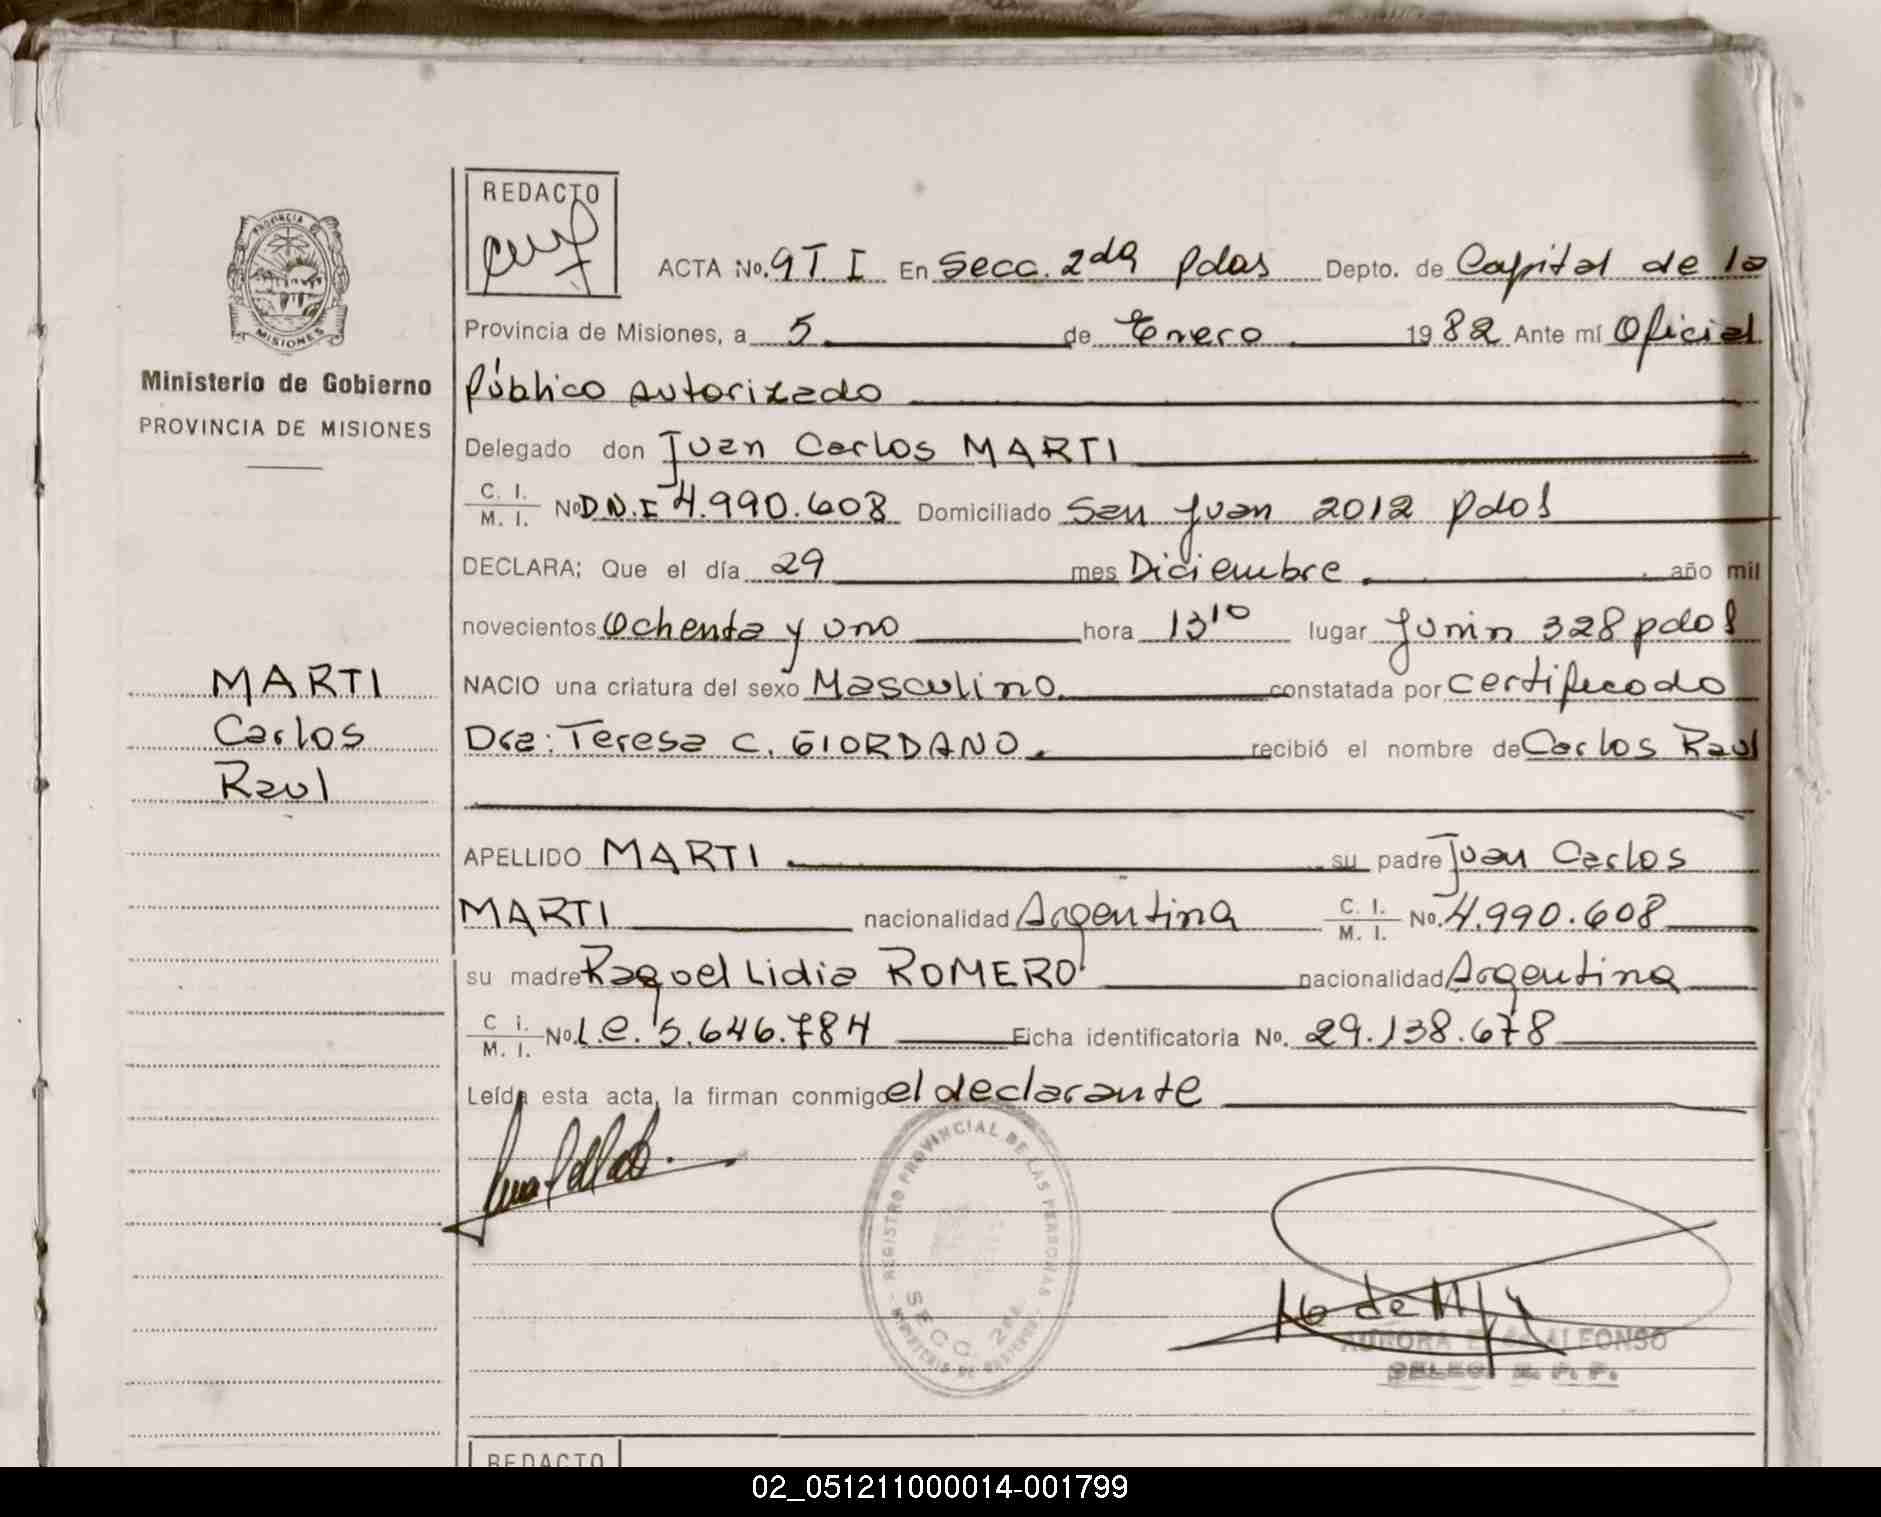 REDACTO
PROVINCIA
MISIONES
Ministerio de Gobierno
PROVINCIA DE MISIONES
MARTI
Carlos
Raul
ACTA No. 9 T I En Secc. 2da Pdas Depto. de Capital de la
Provincia de Misiones, a 5 de Enero 1982 Ante mí Oficial
Público Autorizado
Delegado don Juan Carlos MARTI
C. I. / M. I. No D.N.I 4.990.608 Domiciliado San Juan 2012 Pdas
DECLARA: Que el día 29 mes Diciembre año mil
novecientos Ochenta y uno hora 13 10 lugar Junin 328 pdas
NACIO una criatura del sexo Masculino constatada por certificado
Dra: Teresa C. GIORDANO. recibió el nombre de Carlos Raul
APELLIDO MARTI su padre Juan Carlos
MARTI nacionalidad Argentina C. I. / M. I. No. 4.990.608
su madre Raquel Lidia ROMERO nacionalidad Argentina
C I. / M. I. No. L.C. 5.646.784 Ficha identificatoria No. 29.138.678
Leída esta acta, la firman conmigo el declarante
REGISTRO PROVINCIAL DE LAS PERSONAS
SECC. 2da
MINISTERIO DE GOBIERNO
AURORA E. de ALFONSO
DELEG. R. P. P.
REDACTO
02_051211000014-001799